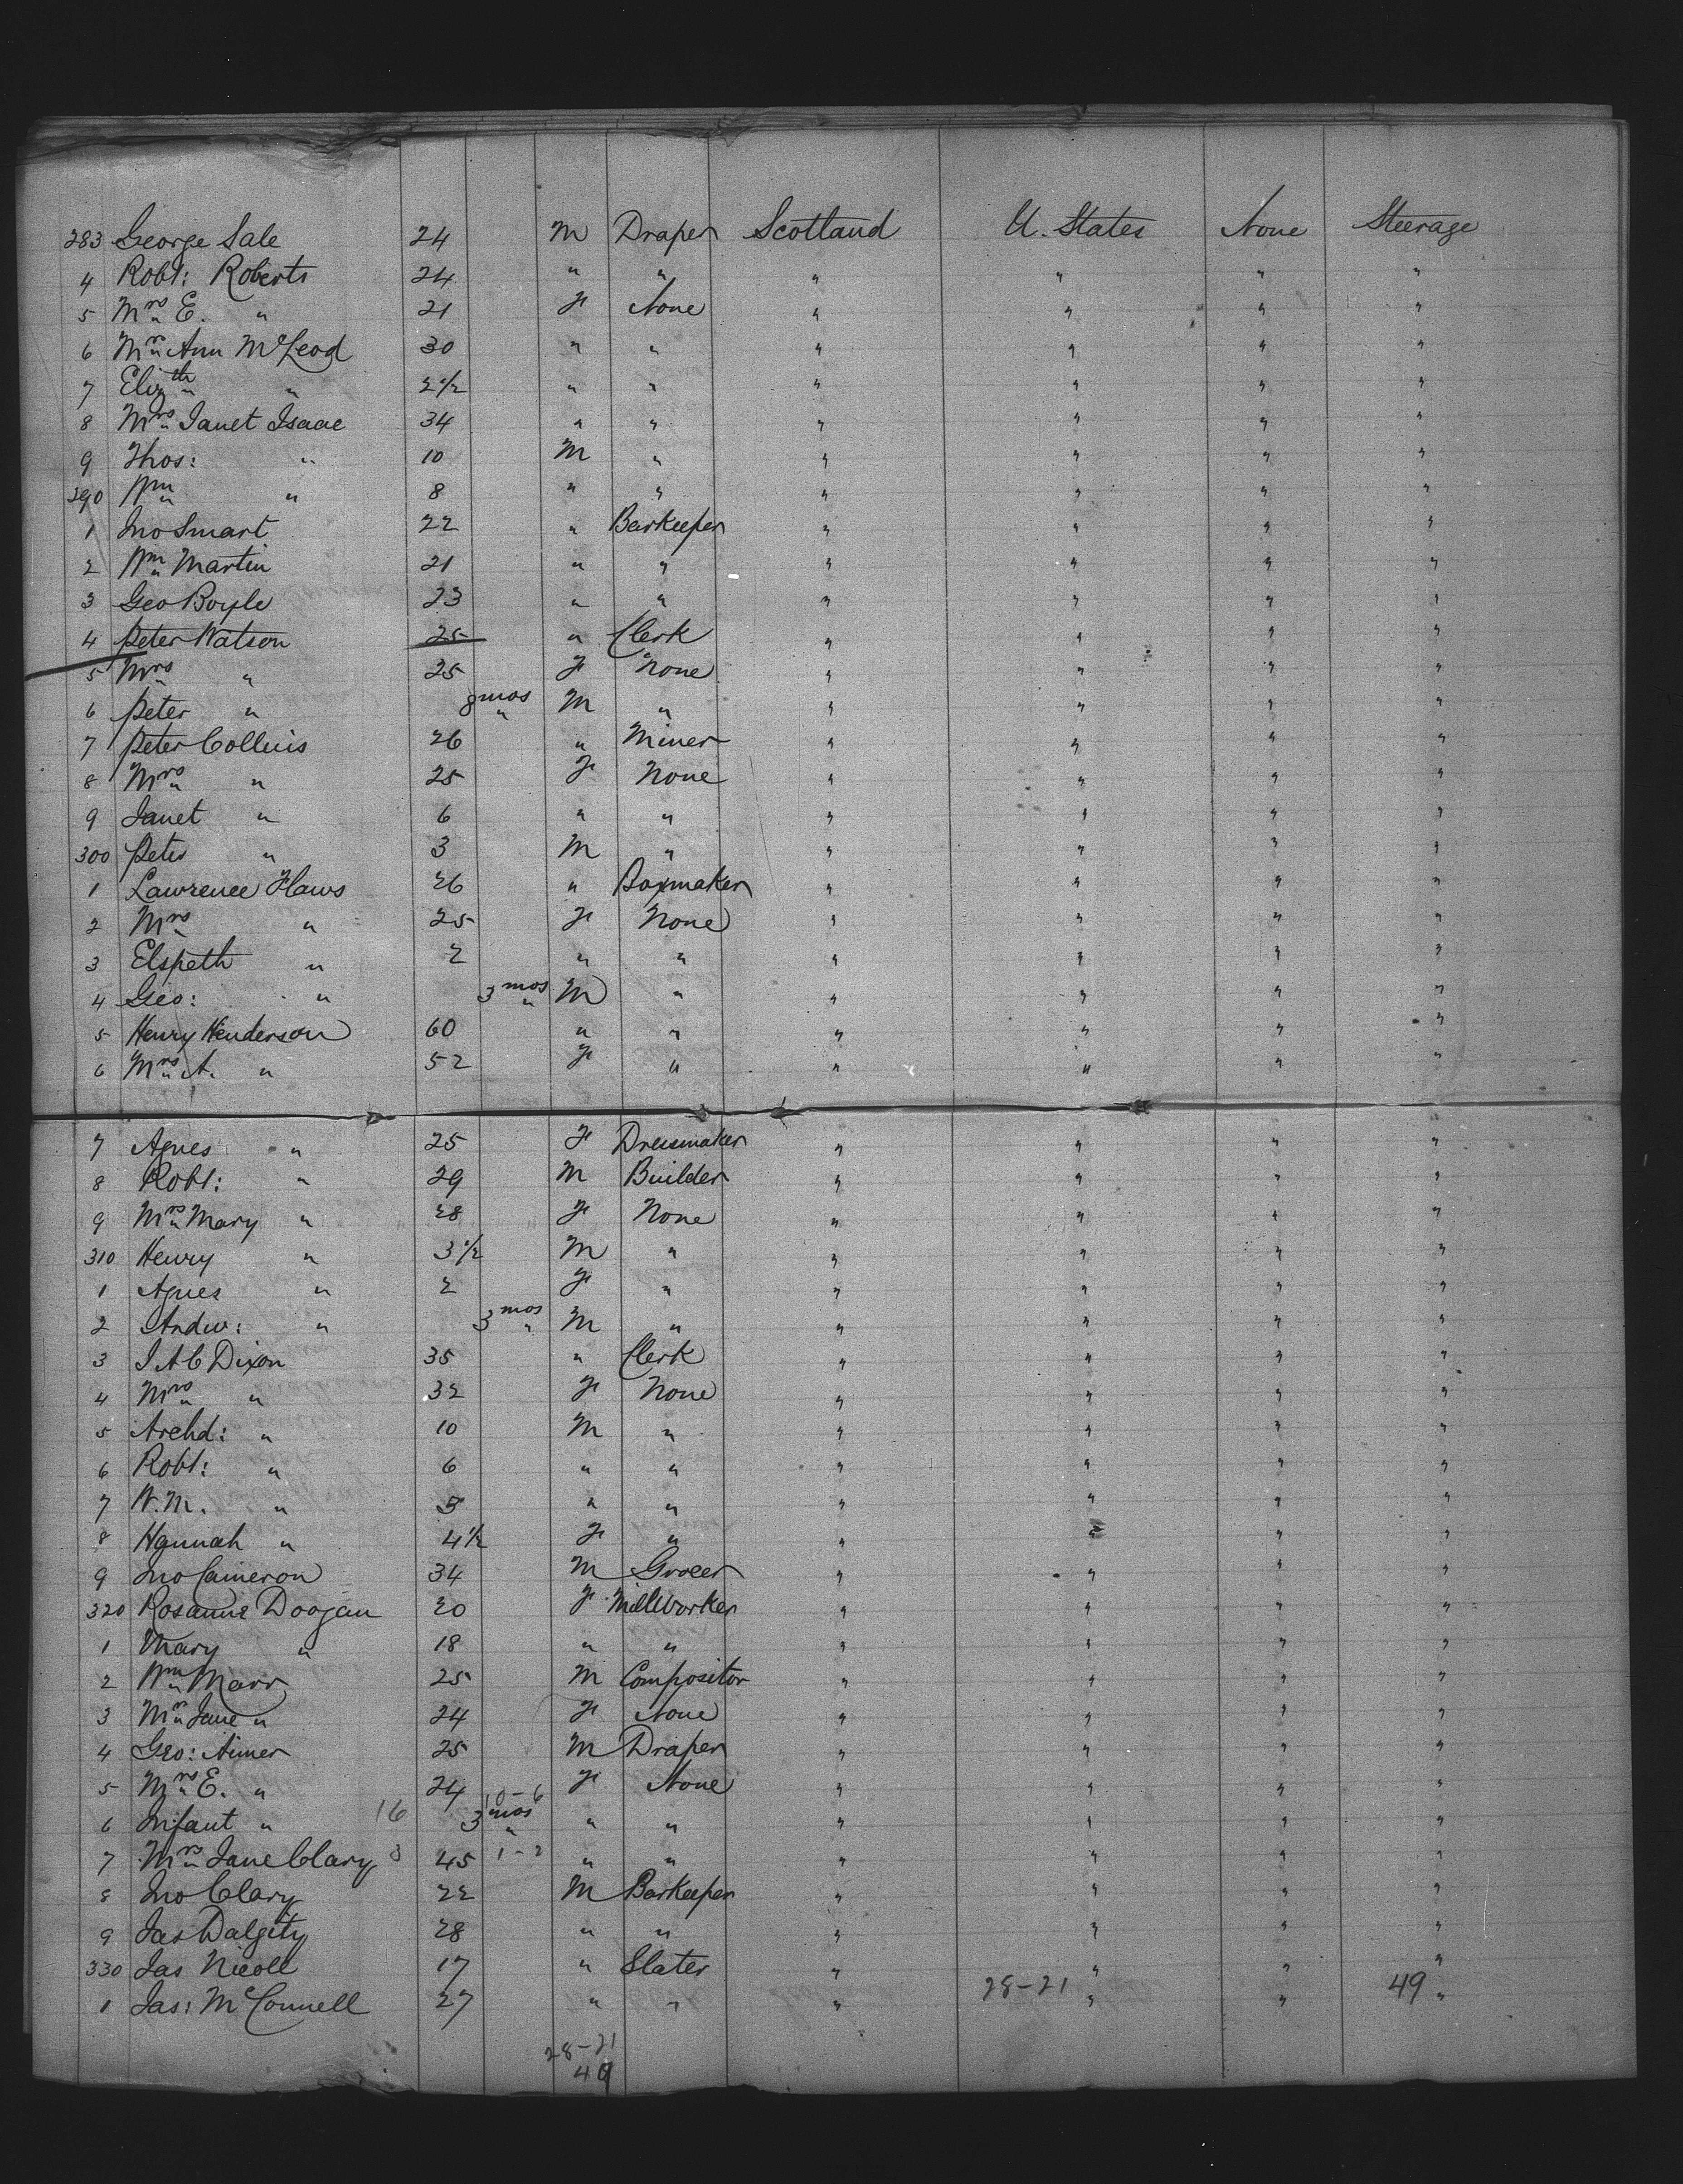 283 George Sale 24 M Draper Scotland U. States None Steerage
4 Robt: Roberts 24 " " " " " "
5 Mrs E. " 21 F None " " " "
6 Mrs Ann McLeod 30 " " " " " "
7 Elizth " 2 1/2 " " " " " "
8 Mrs Janet Isaac 34 " " " " " "
9 Thos: " 10 M " " " " "
290 Wm " 8 " " " " " "
1 Jno Smart 22 " Barkeeper " " " "
2 Wm Martin 21 " " " " " "
3 Geo Boyle 23 " " " " " "
4 Peter Watson 25 " Clerk " " " "
5 Mrs " 25 F None " " " "
6 Peter " 8 mos M " " " " "
7 Peter Collins 26 " Miner " " " "
8 Mrs " 25 F None " " " "
9 Janet " 6 " " " " " "
300 Peter " 3 M " " " " "
1 Lawrence Flaws 26 " Boxmaker " " " "
2 Mrs " 25 F None " " " "
3 Elspeth " 2 " " " " " "
4 Geo: " 3 mos M " " " " "
5 Henry Henderson 60 " " " " " "
6 Mrs A. " 52 F " " " " "
7 Agnes " 25 F Dressmaker " " " "
8 Robt: " 29 M Builder " " " "
9 Mrs Mary " 28 F None " " " "
310 Henry " 3 1/2 M " " " " "
1 Agnes " 2 F " " " " "
2 Andw: " 3 mos M " " " " "
3 J A C Dixon 35 " Clerk " " " "
4 Mrs " 32 F None " " " "
5 Archd: " 10 M " " " " "
6 Robt: " 6 " " " " " "
7 W.M. " " " " " " "
8 Hannah " 4 1/2 F " " " " "
9 Jno Cameron 34 M Grocer " " " "
320 Rosanna Doogan 20 F Millworker " " " "
1 Mary " 18 " " " " " "
2 Wm Marr 25 M Compositor " " " "
3 Mrs Jane " 24 F None " " " "
4 Geo: Aimer 25 M Draper " " " "
5 Mrs E. " 24 F None " " " "
6 Infant " 16 3 mos 10-6 " " " " " "
7 Mrs Jane Clary 3 45 1-2 " " " " " "
8 Jno Clary 22 M Barkeeper " " " "
9 Jas Dalgity 28 " " " " " "
330 Jas Nicoll 17 " Slater " " " "
1 Jas: McConnell 27 " " " 28-21 " " 49 "
28-21
49